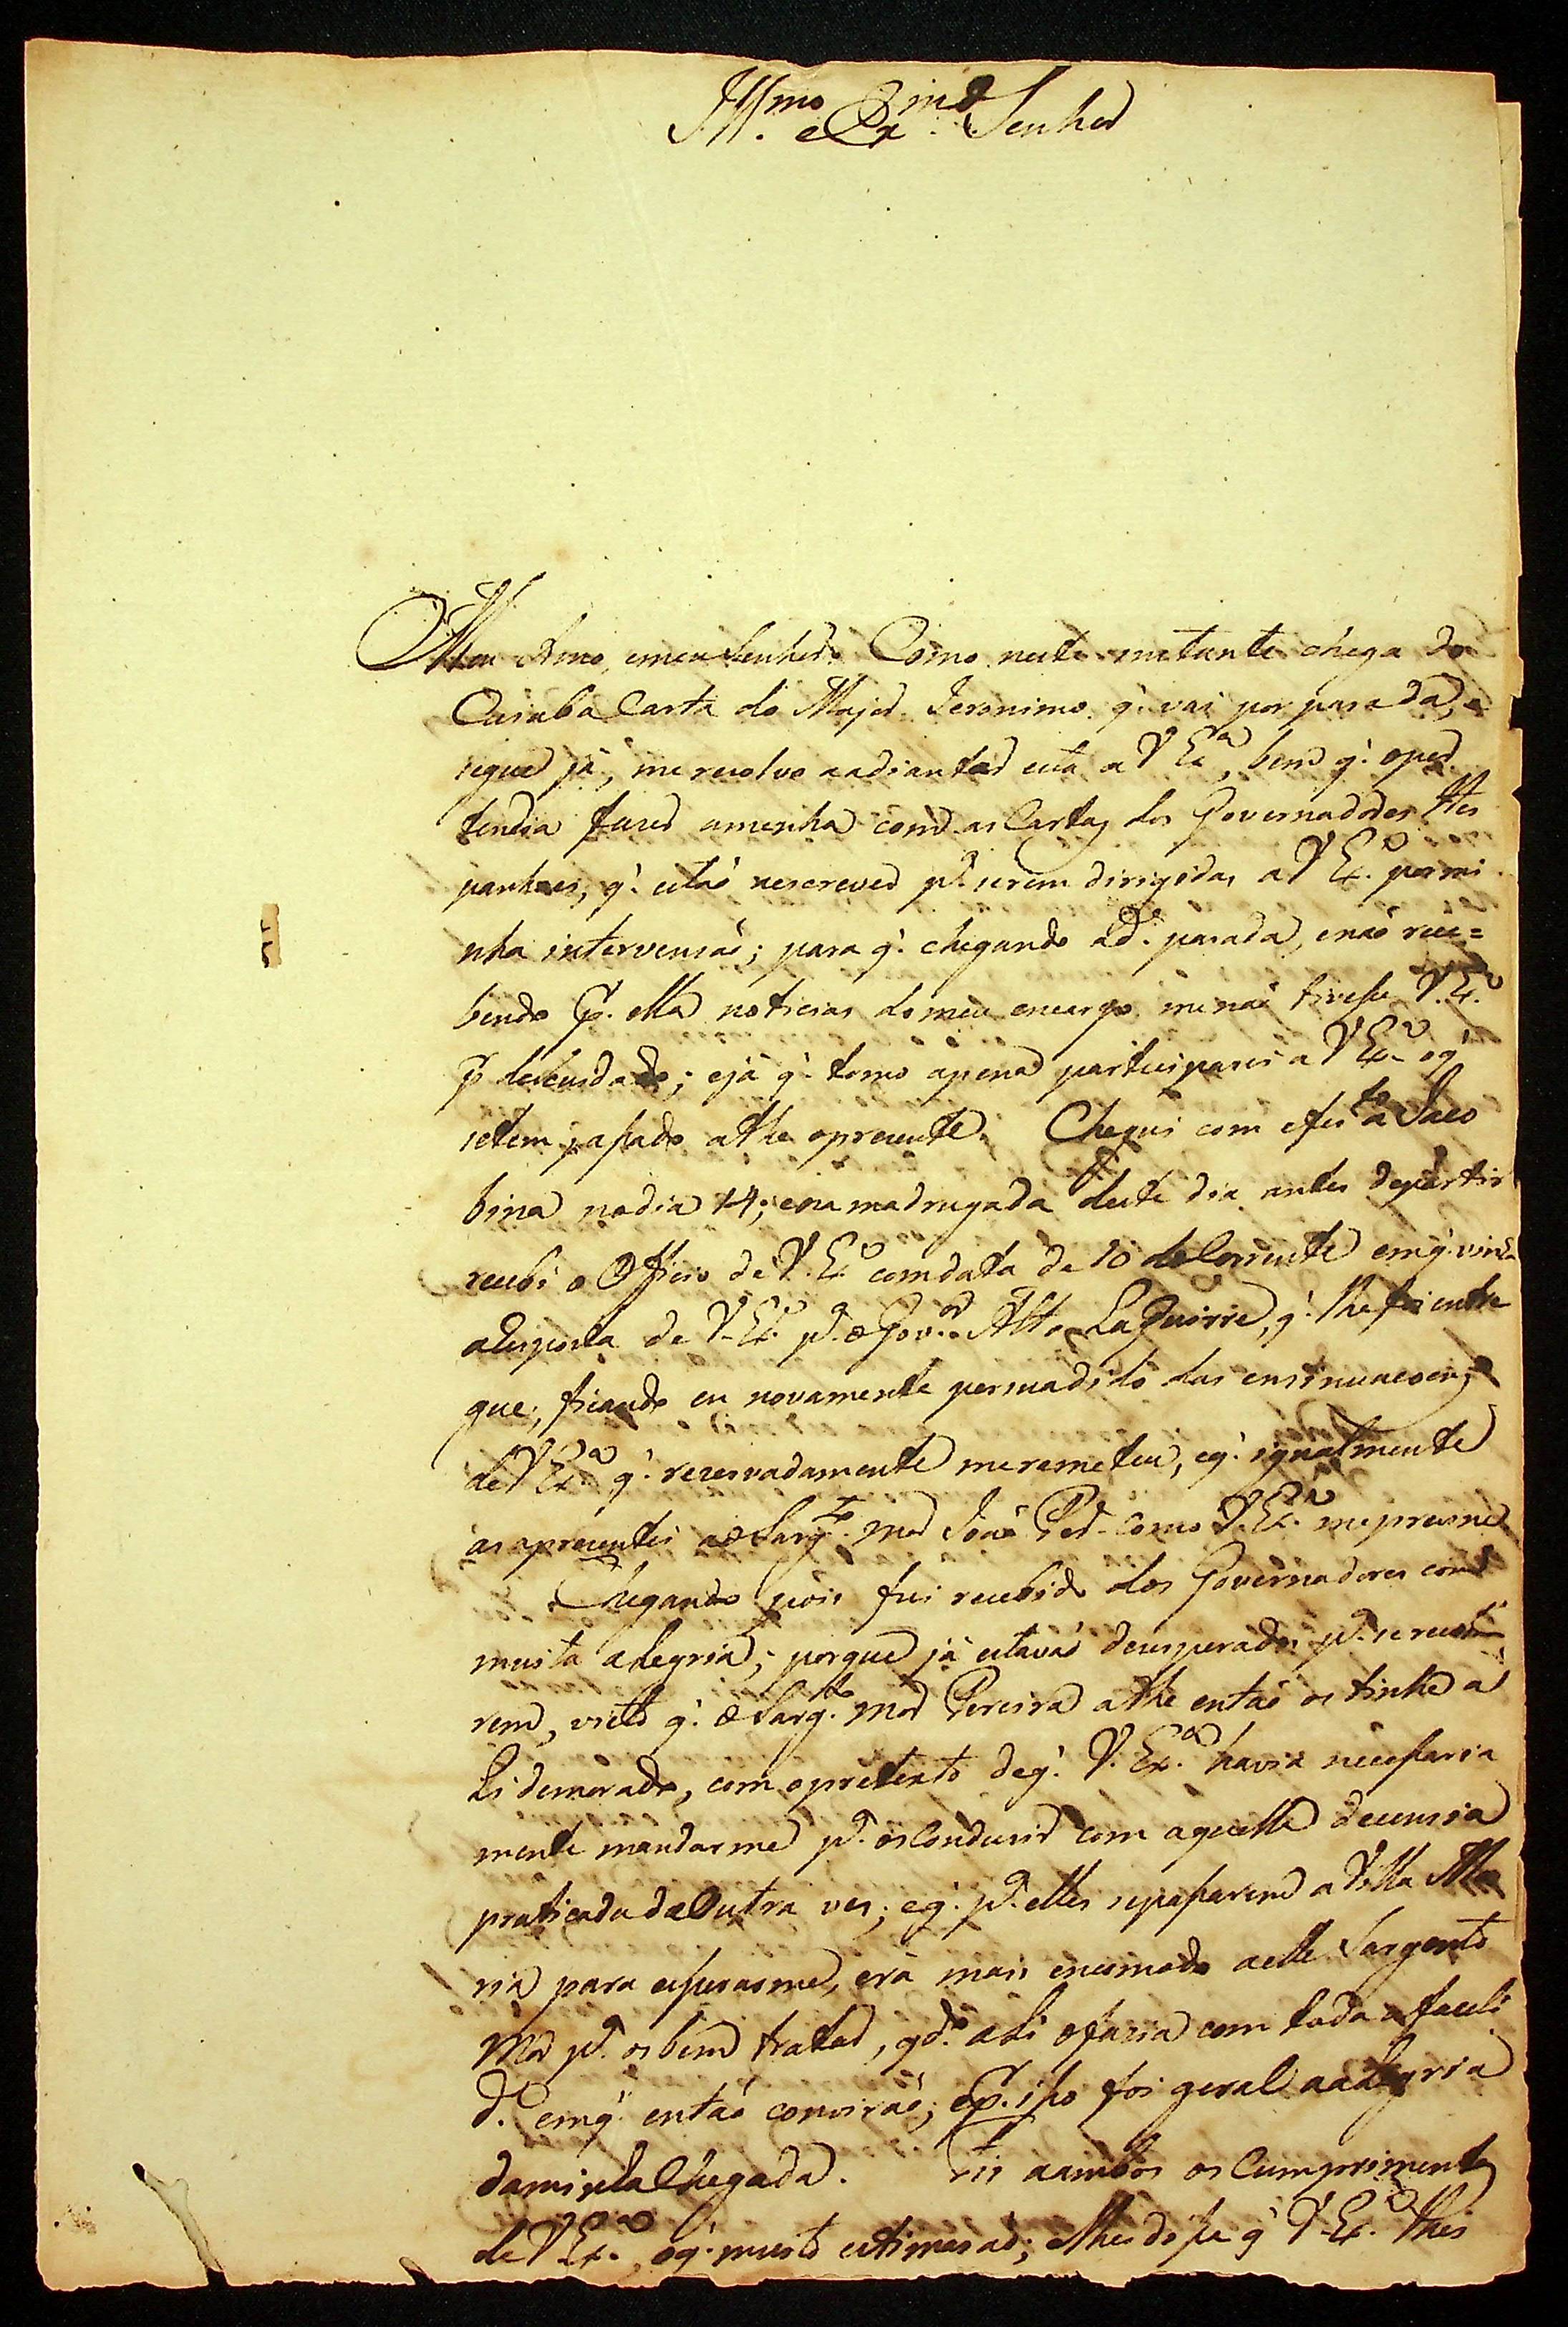 Illmo. e Exmo. Senhor
Meu Amo, emeu Senhor. Como neste instante chega do
Cuiaba Carta do Major Jeronimo q̃. vai por parada, e
segue já, me resolvo a adiantar esta a V Exa, bem q̃. opre
tendia fazer amenha com as Cartas dos Governadores Hes
panhoes, q̃. estaõ aescrever pa. serem dirigidas a V Exa. por mi
nha intervensaõ; para q̃. chegando a da. parada, enaõ rece=
bendo p. ella noticias do meu encargo me naõ tivesse V. Exa.
p descuidado; ejá q̃. tomo apena participarei a V Exa oq̃
setem passado athe opresente. Cheguei com efeito a Jaco
bina nodia 14; ena madrugada deste dia antes departir
recebi o Officio de V. Exa comdata de 10 do Corrente emq̃. vinha
a Resposta de V. Exa. pa. o Govor. Alto Laguirre, q̃. lhe foi entre
gue, ficando eu novamente persuadido das ensinuacoens
de V Exa q̃. rezervadamente meremeteu, eq̃. igualmente
as aprezentei ao Sargto. Mor Joaõ Per. como V. Exa. mepreine
Chegando pois fui recebido dos Governadores com
muita alegria; porque já estavaõ desesperados pa. se
rem, visto q̃. o Sargto. Mor Pereira athe entaõ os tinha a
li demorado, com opretexto deq̃. V. Exa. havia necessaria
mente mandarme pa. os Condusir com aquella decensia
praticada da Outra ves; eq̃. pa. elles sepassarem a Villa Ma
ria para esperarme, era mais encomodo aelle Sargento
Mor pa. os bem tratar, qdo. ali ofazia com toda a facili
de. emq̃. entaõ convieraõ; ep. isso foi geral aalegria
daminha Chegada. Fis aambos os Cumprimentos
de V Exa., oq̃. muito estimaraõ; elhes disse q̃ V. Exa. lhes